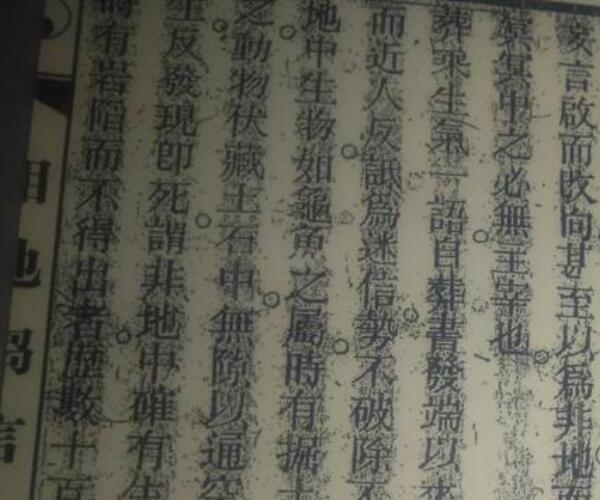 妄言啟而改向甚至以為非地
冥冥中之必無主宰也
葬乘生氣一語自葬書發端以
而近人反譏為迷信勢不破除
地中生物如龜魚之屬時有掘
之動物伏藏土石中無隙以通空
生反發現即死謂非地中確有生
時有岩陷而不得出者歷數十百
相地
言